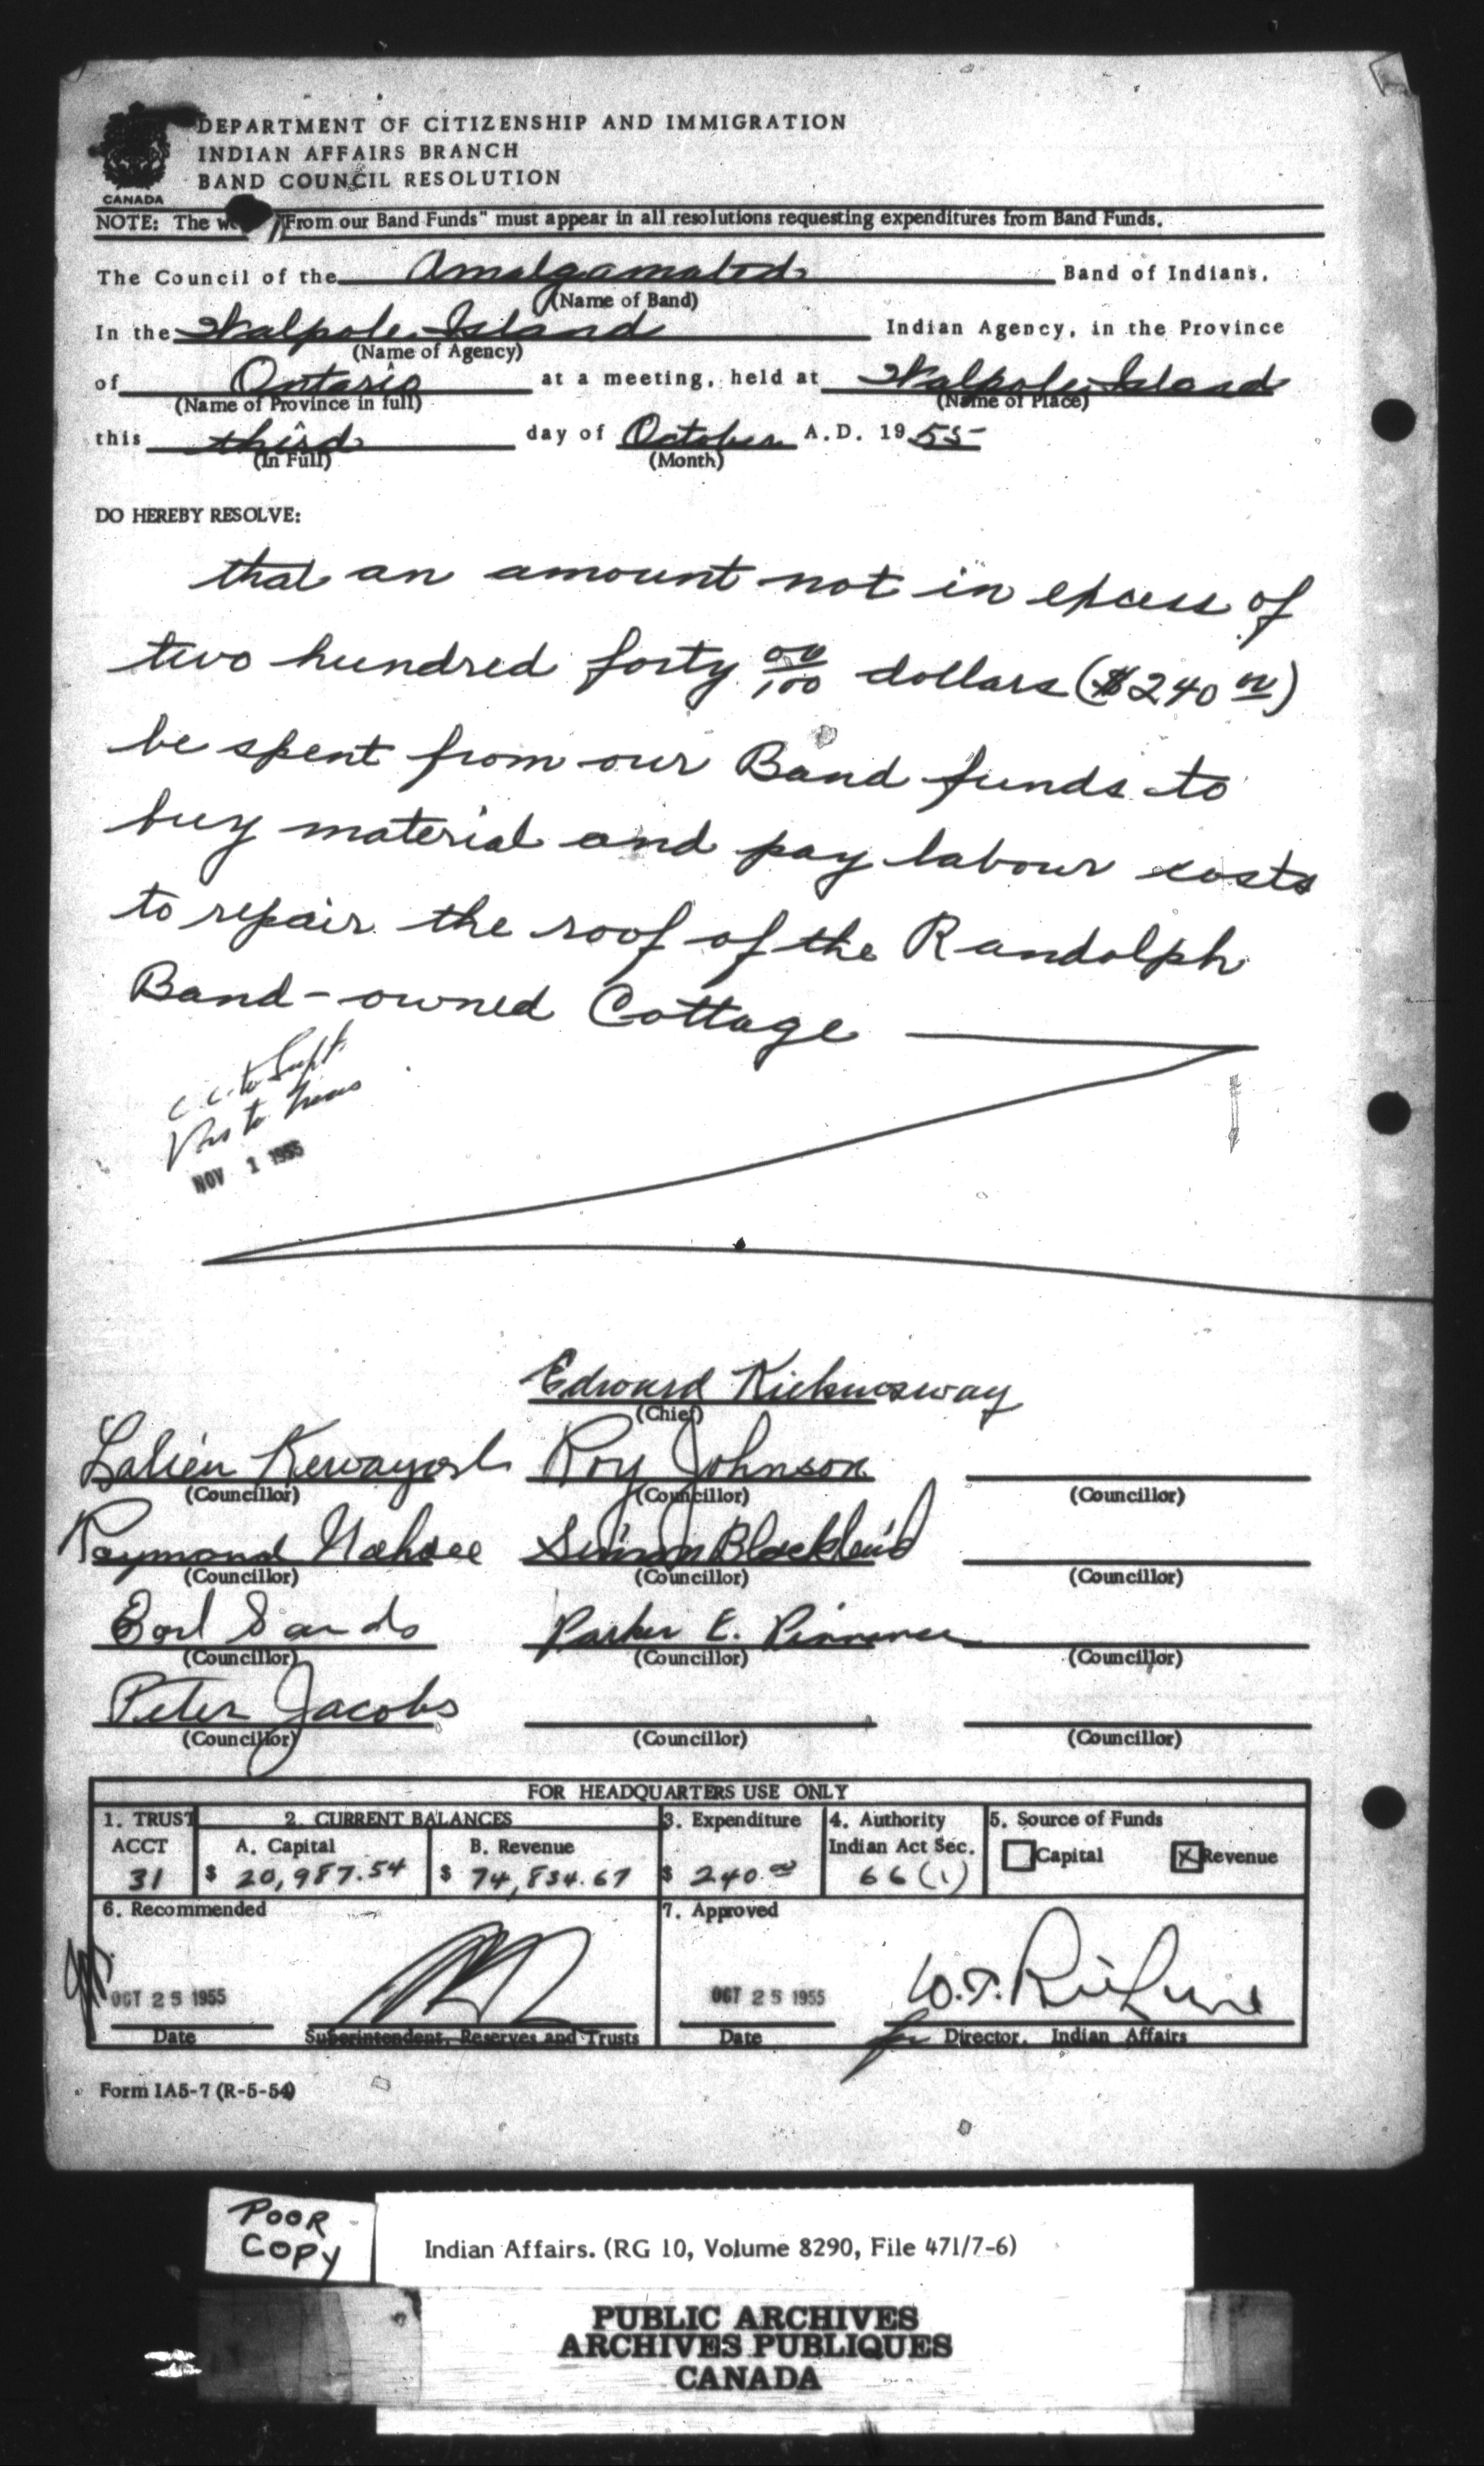 DEPARTMENT OF CITIZENSHIP AND IMMIGRATION
INDIAN AFFAIRS BRANCH
BAND COUNCIL RESOLUTION
CANADA
NOTE: The "From our Band Funds" must appear in all resolutions requesting expenditures from Band Funds.
The Council of the Amalgamated Band of Indians,
(Name of Band)
In the Walpole Island Indian Agency, in the Province
(Name of Agency)
of Ontario at a meeting, held at Walpole Island
(Name of Province in full) (Name of Place)
this third day of October A.D. 1955
(In Full) (Month)
DO HEREBY RESOLVE:
that an amount not in excess of
two hundred forty 00/100 dollars ($240 00)
be spent from our Band funds to
buy material and pay labour costs
to repair the roof of the Randolph
Band-owned Cottage
c.c. to Supt.
to Treas
NOV 1 1955
Edward Kicknosway
(Chief)
Roy Johnson
(Councillor) (Councillor) (Councillor)
Raymond Nahdee Simon Blackbird
(Councillor) (Councillor) (Councillor)
Earl Sands Parker E.
(Councillor) (Councillor) (Councillor)
Peter Jacobs
(Councillor) (Councillor) (Councillor)
FOR HEADQUARTERS USE ONLY
1. TRUST 2. CURRENT BALANCES 3. Expenditure 4. Authority 5. Source of Funds
ACCT A. Capital B. Revenue Indian Act Sec. Capital X Revenue
31 $ 20,987.54 $ 74,834.67 $ 240.00 66(1)
6. Recommended 7. Approved
OCT 25 1955 OCT 25 1955 W.T.
Date Superintendent, Reserves and Trusts Date for Director, Indian Affairs
Form IA5-7 (R-5-54)
POOR
COPY
Indian Affairs. (RG 10, Volume 8290, File 471/7-6)
PUBLIC ARCHIVES
ARCHIVES PUBLIQUES
CANADA